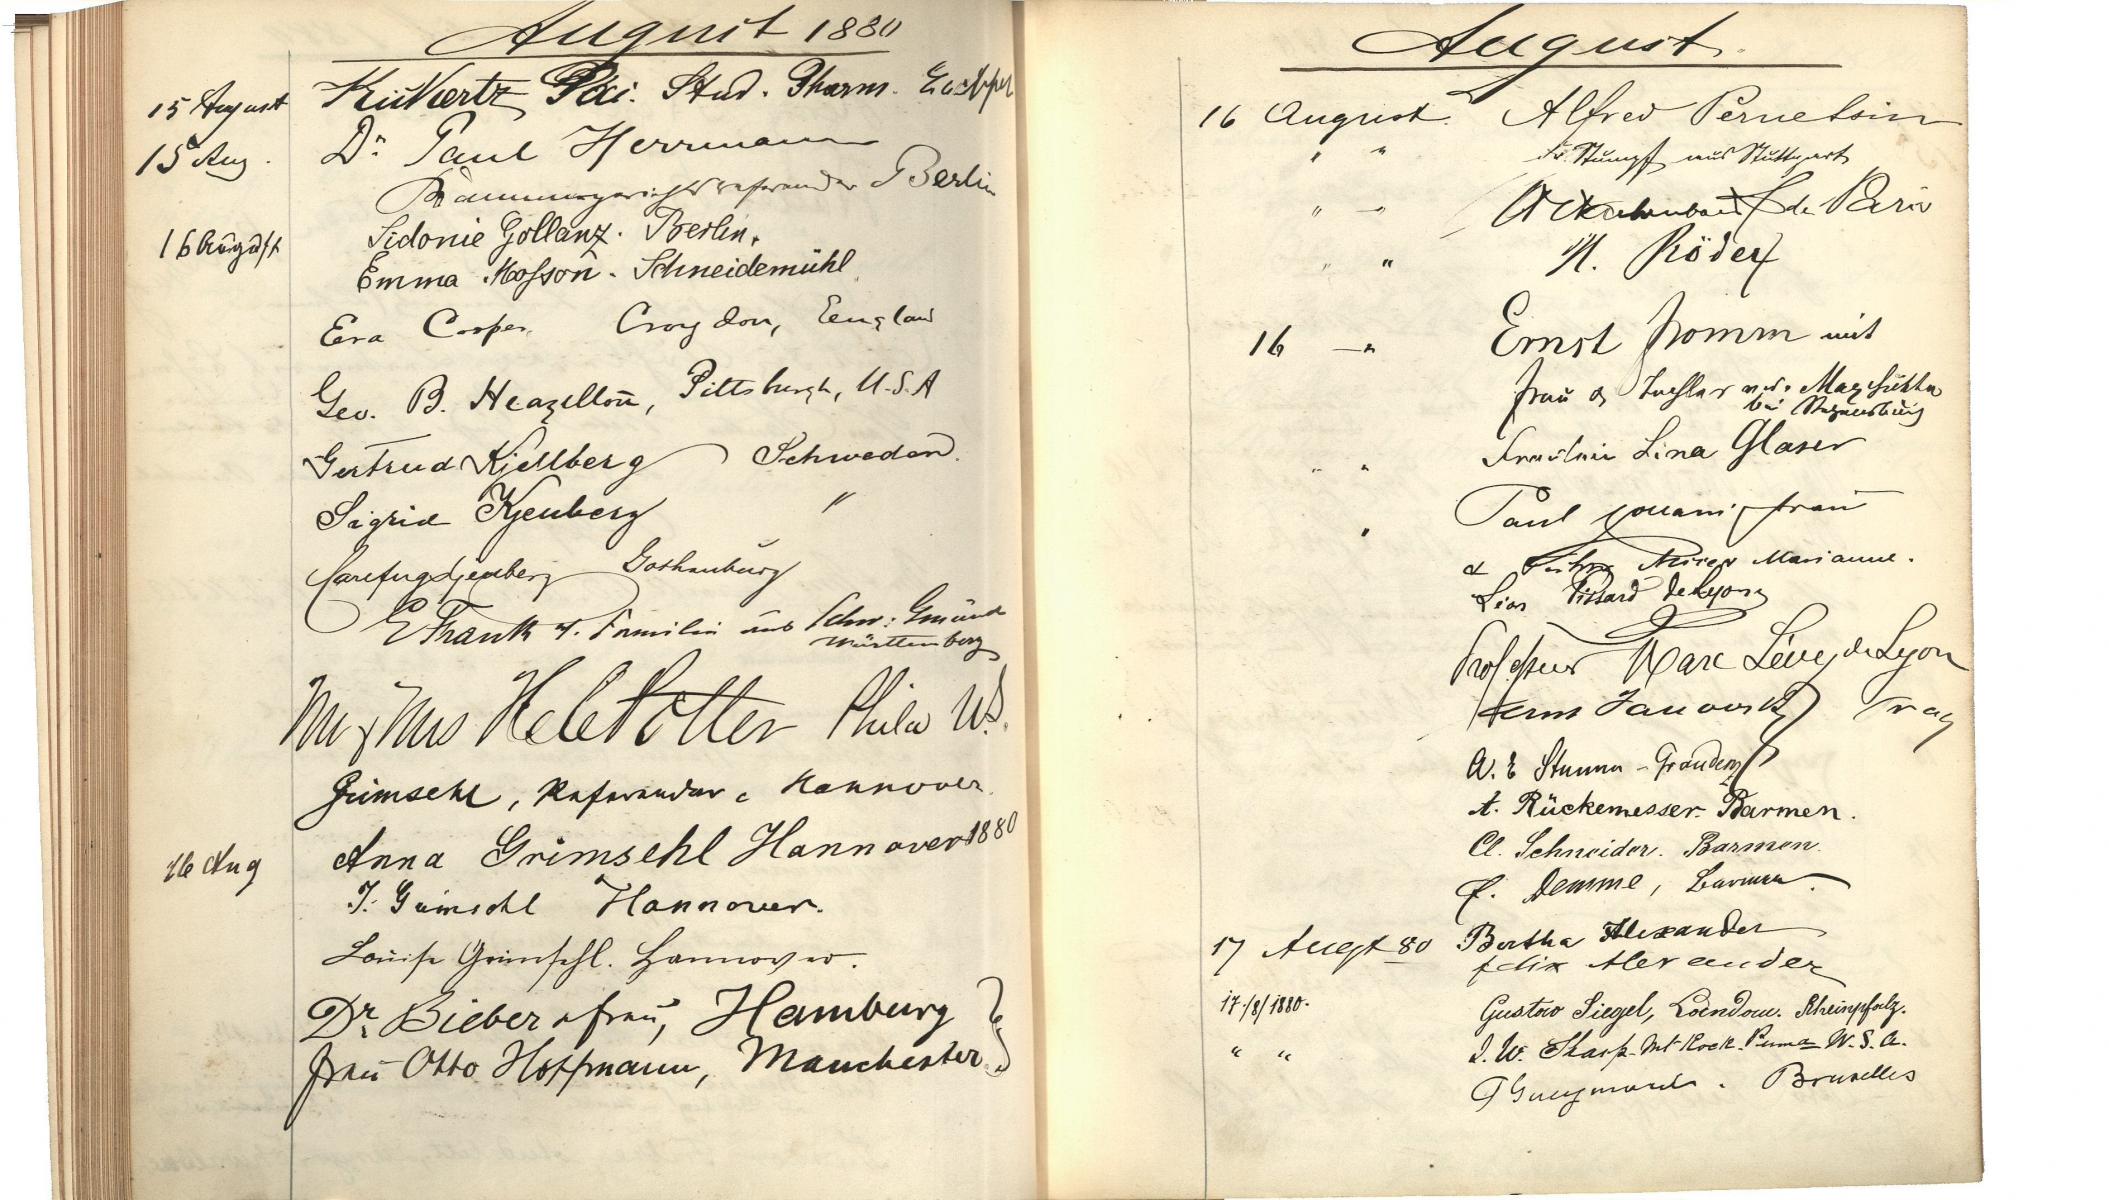 August 1880
15 August Stud. Pharm.
15 Aug. Dr. Paul Herrmann
Berlin
16 August Sidonie Gollanz. Berlin.
Emma Mosson. Schneidemühl
Eva Cooper Croydon, England
Geo. B. Heazelton, Pittsburgh, U.S.A
Gertrud Kjellberg Schweden.
Sigrid Kjellberg "
Gothenburg
E Frank u. Familie aus Schw: Gmünd
Württemberg
Mr & Mrs Potter Phila US.
Grimsehl, Referendar, Hannover
16 Aug Anna Grimsehl Hannover 1880
J. Grimsehl Hannover.
Louise Grimsehl. Hannover.
Dr. Bieber & Frau, Hamburg
Frau Otto Hoffmann, Manchester
August
16 August. Alfred
" " Stumpf aus Stuttgart
" — " de Paris
" " H. Röder
16 — " Ernst Fromm mit
Frau & Tochter
bei Regensburg
" " Fräulein Lina Glaser
" Paul Frau
& Marianne.
Léon Pissard de Lyon
Professeur Marc Lévy de Lyon
Janowsky Prag
A. E Stumm - Graudenz
A. Rückemesser. Barmen.
Cl. Schneider. Barmen.
F. Demme, Barmen.
17 Augst 80 Bertha Alexander
Felix Alexander
17./8/1880. Gustav Siegel, Landau. Rheinpfalz.
" " J. W. Sharp. Mt Rock. Penna U.S.A.
Bruxelles